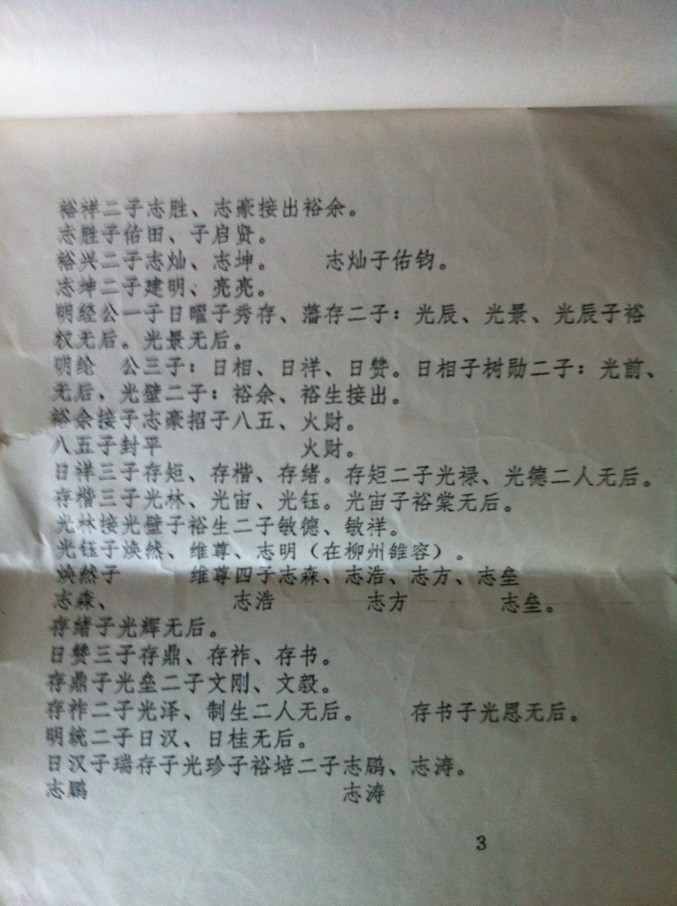 裕祥二子志胜、志豪接出裕余。
志胜子佑田、子启贤。
裕兴二子志灿、志坤。　　志灿子佑钧。
志坤二子建明、亮亮。
明经公一子日曜子秀存、落存二子：光辰、光景、光辰子裕
权无后。光景无后。
明纶　公三子：日相、日祥、日赞。日相子树勋二子：光前、
无后，光壁二子：裕余、裕生接出。
裕余接子志豪招子八五、火财。
八五子封平　　　　　　火财。
日祥三子存矩、存楷、存绪。存矩二子光禄、光德二人无后。
存楷三子光林、光宙、光钰。光宙子裕棠无后。
光林接光壁子裕生二子敏德、敏祥。
光钰子焕然、维尊、志明（在柳州雒容）。
焕然子　　　维尊四子志森、志浩、志方、志垒
志森、　　　　　志浩　　　　志方　　　　　志垒。
存绪子光辉无后。
日赞三子存鼎、存祚、存书。
存鼎子光垒二子文刚、文毅。
存祚二子光泽、制生二人无后。　　存书子光恩无后。
明统二子日汉、日桂无后。
日汉子瑞存子光珍子裕培二子志鹏、志涛。
志鹏　　　　　　　　　　　志涛
3